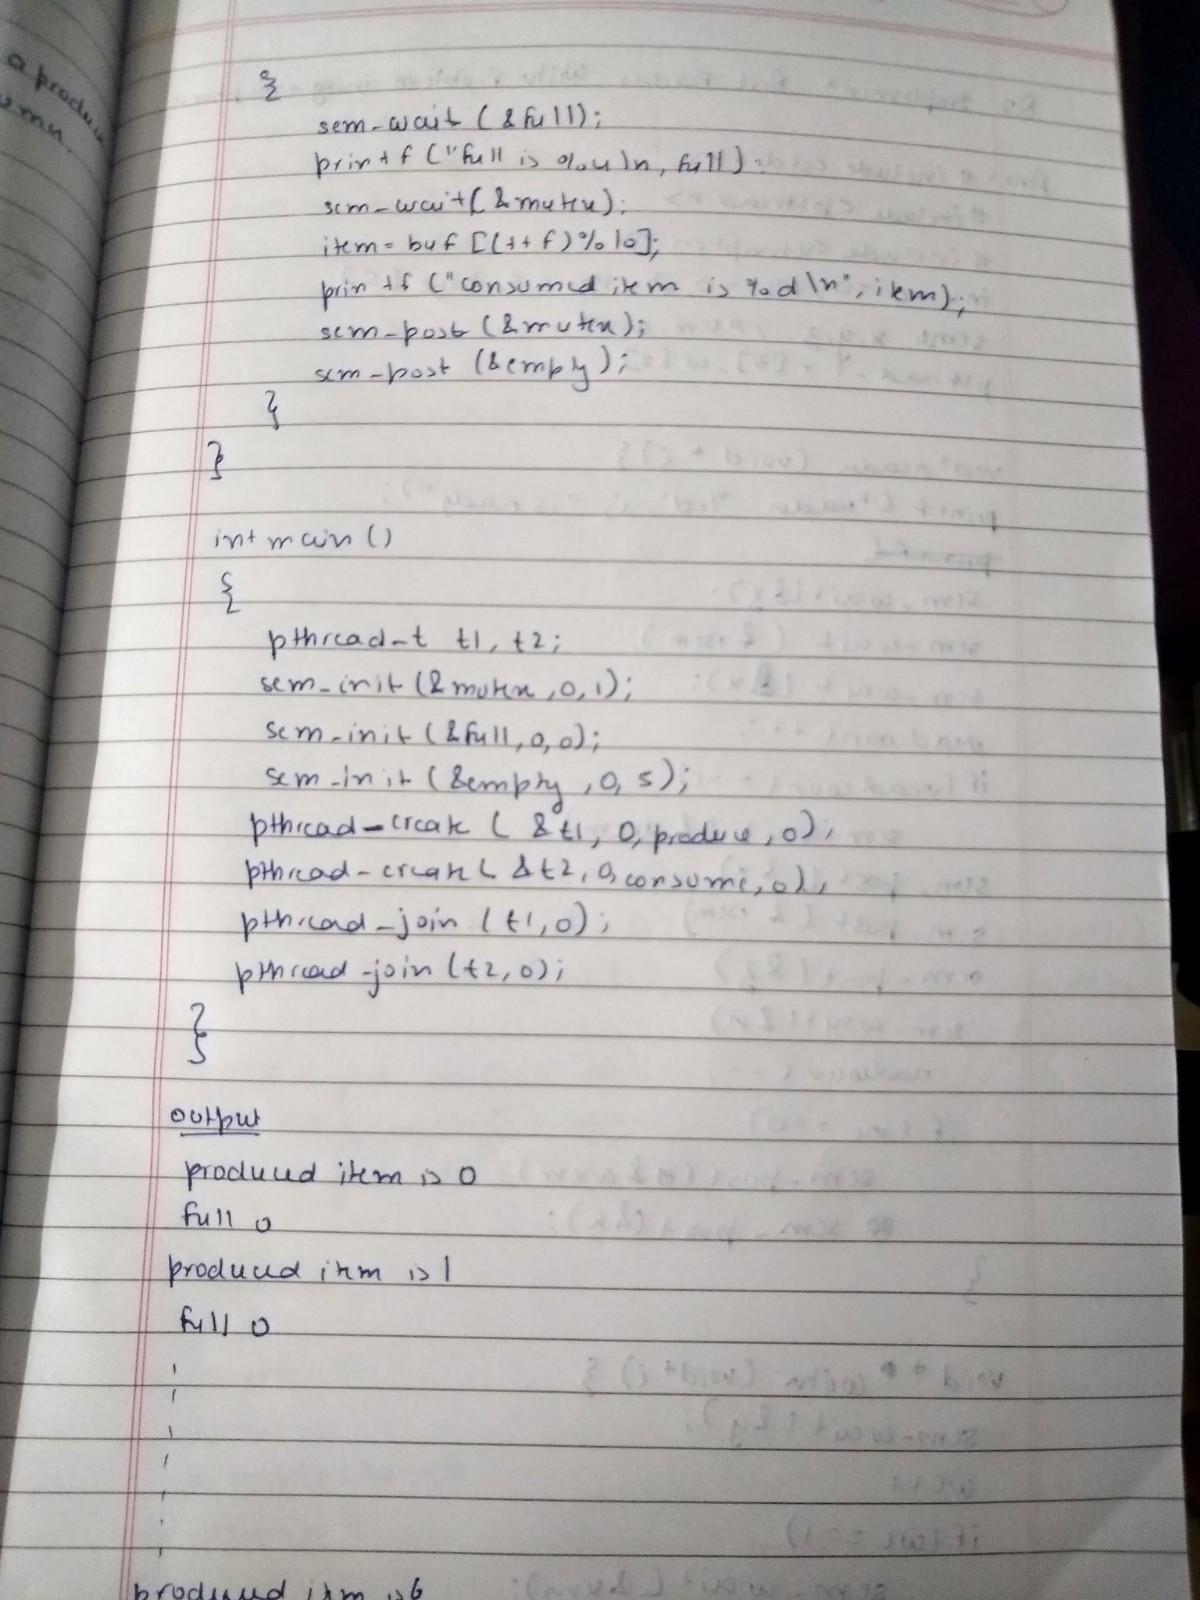 a produ
umn.
{
sem-wait (&full);
printf ("full is %u\n, full).
sem-wait(&mutex);
item = buf [(++f)%10];
printf ("consumed item is %d\n", item);
sem-post (&mutex);
sem-post (&empty);
}
}
int main ()
{
pthread-t t1, t2;
sem-init (&mutex, 0, 1);
sem-init (&full, 0, 0);
sem-init (&empty, 0, 5);
pthread-create ( &t1, 0, produce, 0);
pthread-create ( &t2, 0, consume, 0);
pthread-join (t1, 0);
pthread-join (t2, 0);
}
output
produced item is 0
full 0
produced item is 1
full 0
produced item is 6